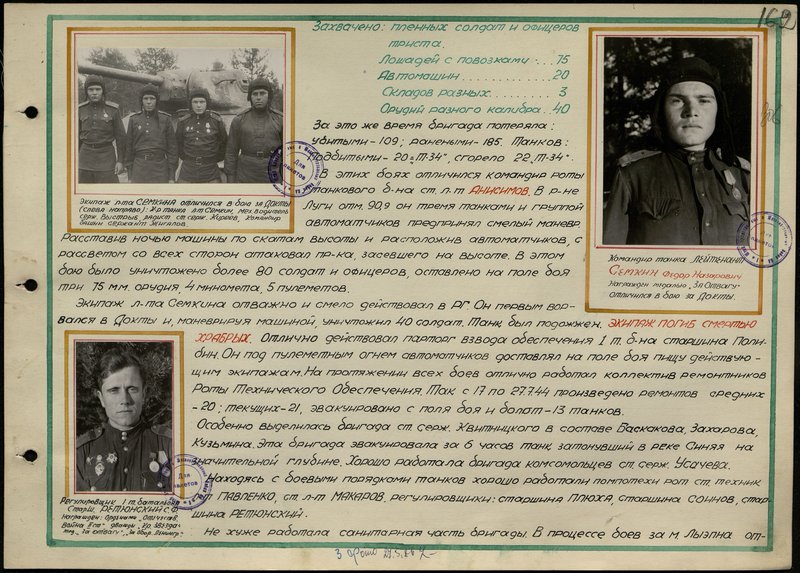 162
Захвачено: пленных солдат и офицеров
триста.
Лошадей с повозками ... 75
Автомашин .......... 20
Складов разных ......... 3
Орудий разного калибра . 40
За это же время бригада потеряла:
убитыми - 109; ранеными - 185. Танков:
подбитыми - 20 „Т-34", сгорело 22 „Т-34".
В этих боях отличился командир роты
танкового б-на ст. л-т Анисимов. В р-не
Луги отм. 90,9 он тремя танками и группой
автоматчиков предпринял смелый маневр.
Расставив ночью машины по скатам высоты и расположив автоматчиков, с
рассветом со всех сторон атаковал пр-ка, засевшего на высоте. В этом
бою было уничтожено более 80 солдат и офицеров, оставлено на поле боя
три 75 мм. орудия, 4 миномета, 5 пулеметов.
Экипаж л-та Семкина отважно и смело действовал в РГ. Он первым вор-
вался в Докты и, маневрируя машиной, уничтожил 40 солдат. Танк был подожжен. Экипаж погиб смертью
храбрых. Отлично действовал парторг взвода обеспечения 1 т. б-на старшина Поли-
бин. Он под пулеметным огнем автоматчиков доставлял на поле боя пищу действую-
щим экипажам. На протяжении всех боев отлично работал коллектив ремонтников
Роты Технического Обеспечения. Так с 17 по 27.7.44 произведено ремонтов средних
-20; текущих-21, эвакуировано с поля боя и болот-13 танков.
Особенно выделилась бригада ст. серж. Жвитницкого в составе Баскакова, Захарова,
Кузьмина. Эта бригада эвакуировала за 6 часов танк, затонувший в реке Синяя на
значительной глубине. Хорошо работала бригада комсомольцев ст. серж. Усачева.
Находясь с боевыми порядками танков хорошо работали помпотехи рот ст. техник
л-т Павленко, ст. л-т Макаров, регулировщики: старшина Плюха, старшина Соинов, стар-
шина Ретюнский.
Не хуже работала санитарная часть бригады. В процессе боев за м. Лыэпна от-
Экипаж л-та Семкина отличился в бою за Докты
(слева направо): К-р танка л-т Семкин, мех. водитель
серж. Быстрых, радист ст. серж. Журвев, командир
башни сержант Жигалов.
Командир танка лейтенант
Семкин Федор Назарович
Награжден медалью „За Отвагу"
отличился в бою за Докты.
Регулировщик 1 т. батальона
Старш. Ретюнский С.Ф.
Награжден: орденами „Отечеств.
Война II ст" дважды, „Кр. Звезда"
мед. „За отвагу", „За Обор. Ленингр."
Для
пакетов
Для
пакетов
Для
пакетов
3 фото